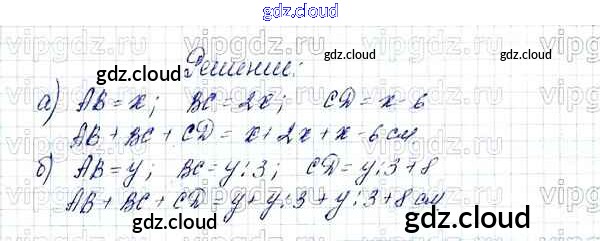 gdz.cloud
Решение:
а) AB = x; BC = 2x; CD = x - 6
AB + BC + CD = x + 2x + x - 6 см
б) AB = y; BC = y : 3; CD = y : 3 + 8
AB + BC + CD = y + y : 3 + y : 3 + 8 см
gdz.cloud
gdz.cloud
gdz.cloud
gdz.cloud
gdz.cloud
gdz.cloud
vipgdz.ru